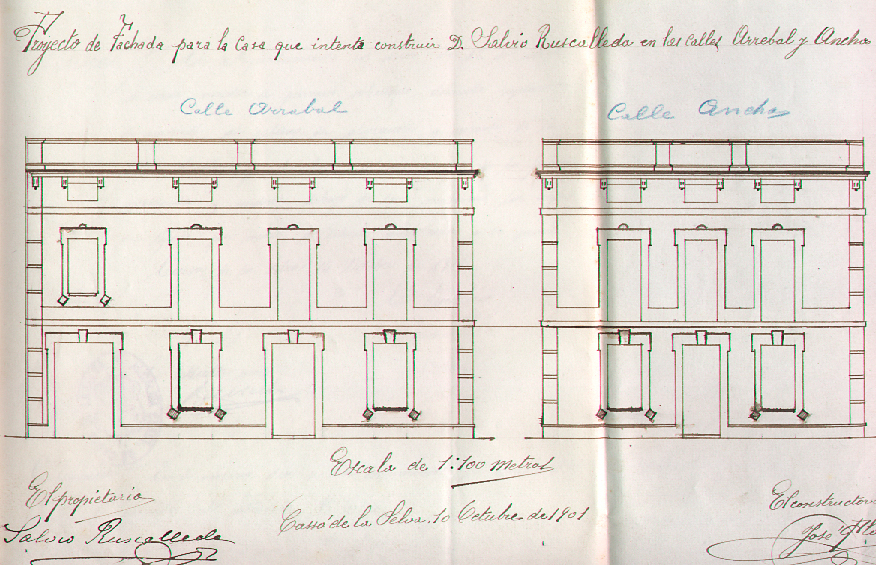 Proyecto de Fachada para la Casa que intenta construir D. Salvio Ruscalleda en las calles Arrebal y Ancha
Calle Arrabal
Calle Ancha
Escala de 1:100 metros
El propietario
Salvio Ruscalleda
Cassá de la Selva. 10 Octubre de 1901
El constructor
José